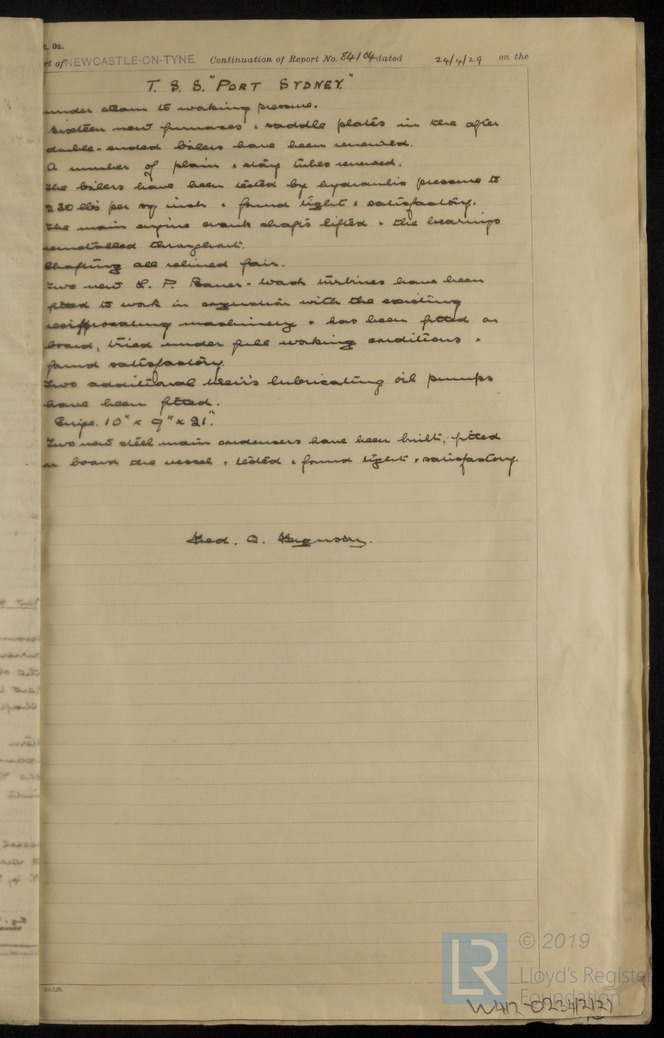 t. 9a.
rt of NEWCASTLE-ON-TYNE Continuation of Report No. 84104 dated 24/4/29 on the
T. S. S. "PORT SYDNEY."
under steam to working pressure.
Sixteen new furnaces & saddle plates in the after
double-ended boilers have been renewed.
A number of plain & stay tubes renewed.
The boilers have been tested by hydraulic pressure to
230 lbs per sq inch & found tight & satisfactory.
The main engine crank shafts lifted & the bearings
remetalled throughout.
Shafting all relined fair.
Two new L. P. Bauer-Wach turbines have been
fitted to work in conjunction with the existing
reciprocating machinery & has been fitted on
board, tried under full working conditions &
found satisfactory.
Two additional Weir's lubricating oil pumps
have been fitted.
10" x 9" x 21".
Two new steel main condensers have been built, fitted
on board the vessel, tested & found tight & satisfactory.
Fred. A. Ferguson.
© 2019
LR
Lloyd's Register
Foundation